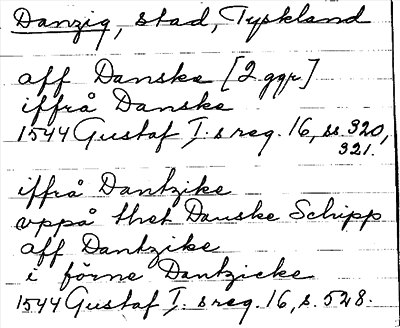 Danzig, stad, Tyskland
aff Danske [2 ggr]
iffrå Danske
1544 Gustaf I:s reg. 16, ss. 320,
321.
iffrå Dantzike
vppå thet Danske Schipp
aff Dantzike
i förne Dantzicke
1544 Gustaf I:s reg. 16, s. 528.